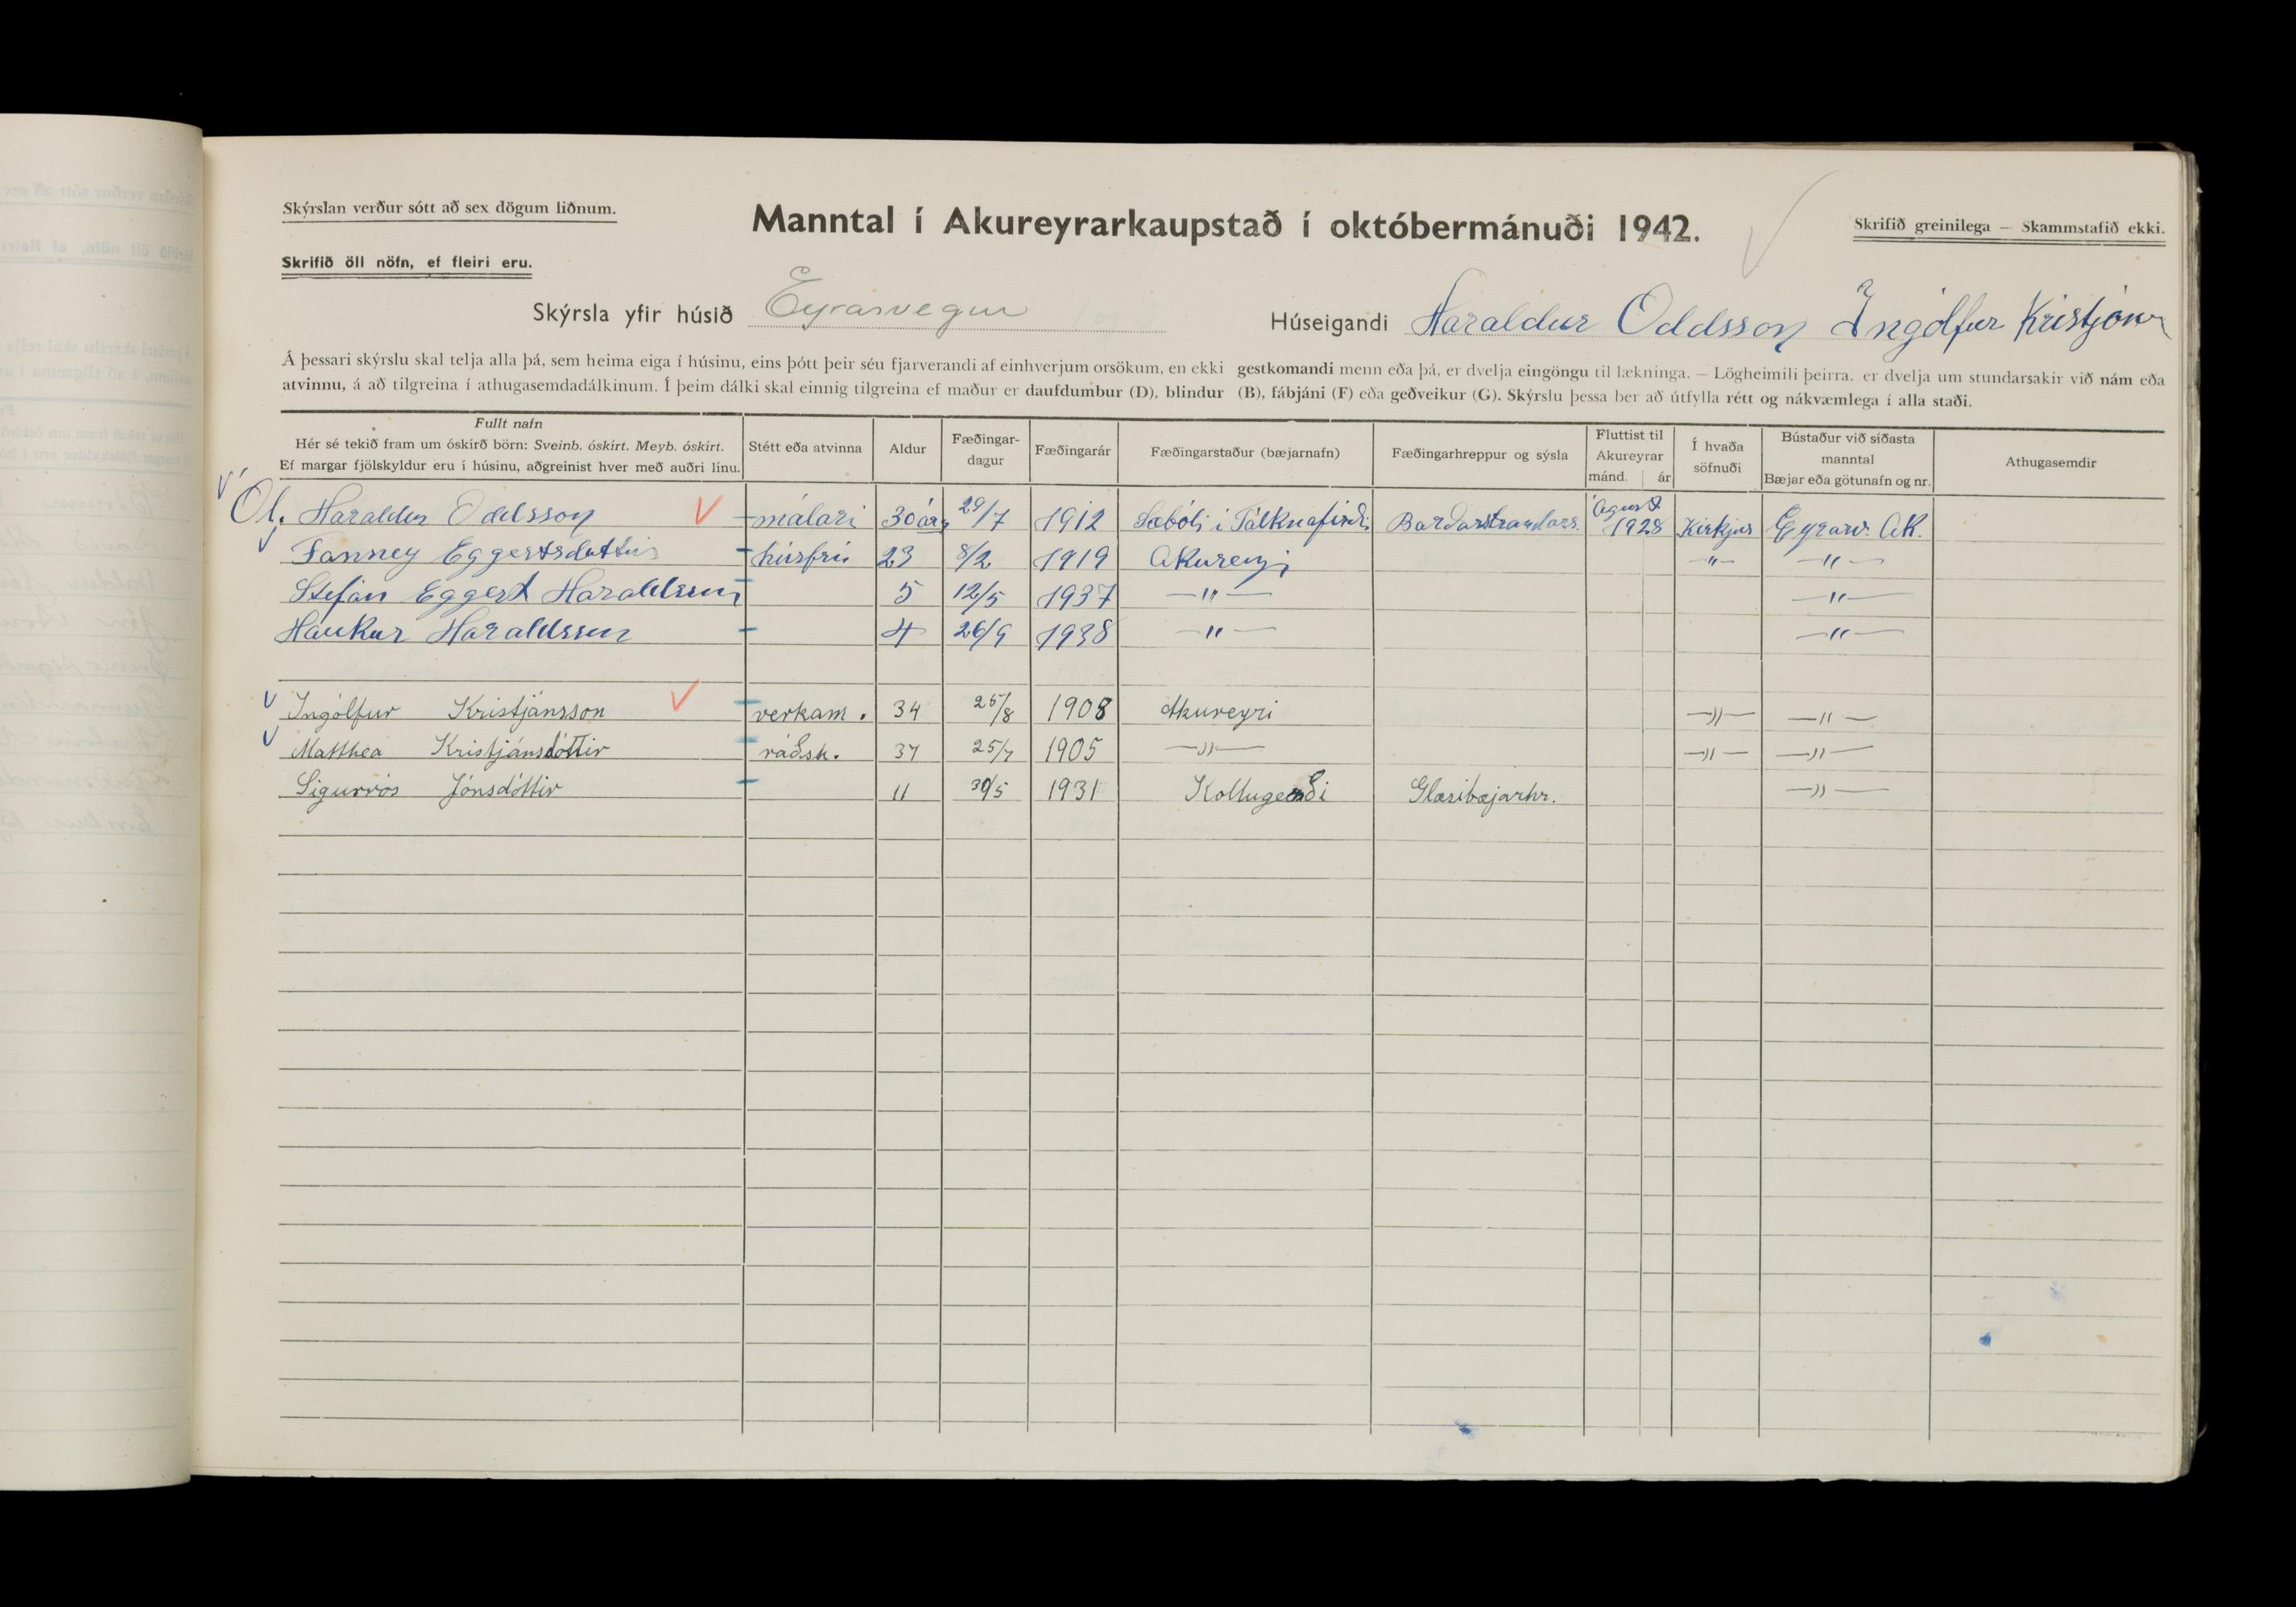 Skýrslan verður sótt að sex dögum liðnum.
Manntal í Akureyrarkaupstað í októbermánuði 1942.
Skrifið greinilega — Skammstafið ekki.
Skrifið öll nöfn, ef fleiri eru.
Skýrsla yfir húsið Eyrarvegur
Húseigandi Haraldur Oddsson Ingólfur Kristjáns
Á þessari skýrslu skal telja alla þá, sem heima eiga í húsinu, eins þótt þeir séu fjarverandi af einhverjum orsökum, en ekki gestkomandi menn eða þá, er dvelja eingöngu til lækninga. — Lögheimili þeirra, er dvelja um stundarsakir við nám eða
atvinnu, á að tilgreina í athugasemdadálkinum. Í þeim dálki skal einnig tilgreina ef maður er daufdumbur (D), blindur (B), fábjáni (F) eða geðveikur (G). Skýrslu þessa ber að útfylla rétt og nákvæmlega í alla staði.
Fullt nafn
Hér sé tekið fram um óskírð börn: Sveinb. óskírt. Meyb. óskírt.
Ef margar fjölskyldur eru í húsinu, aðgreinist hver með auðri línu.
Stétt eða atvinna
Aldur
Fæðingar-
dagur
Fæðingarár
Fæðingarstaður (bæjarnafn)
Fæðingarhreppur og sýsla
Fluttist til
Akureyrar
mánd. ár
Í hvaða
söfnuði
Bústaður við síðasta
manntal
Bæjar eða götunafn og nr.
Athugasemdir
Ól. Haraldur Oddsson málari 30 ára 29/7 1912 Sæbóli í Tálknafirði Barðarstrandars. Ágúst 1928 Kirkjus Eyrarv. AK.
Fanney Eggertsdóttir húsfrú 23 8/2 1919 Akureyri —"— —"—
Stefán Eggert Haraldsson 5 12/5 1937 —"— —"—
Haukur Haraldsson 4 26/9 1938 —"— —"—
Ingólfur Kristjánsson verkam. 34 25/8 1908 Akureyri —"— —"—
Matthea Kristjánsdóttir ráðsk. 37 25/7 1905 —"— —"— —"—
Sigurrós Jónsdóttir 11 30/5 1931 Kollugerði Glæsibæjarhr. —"—